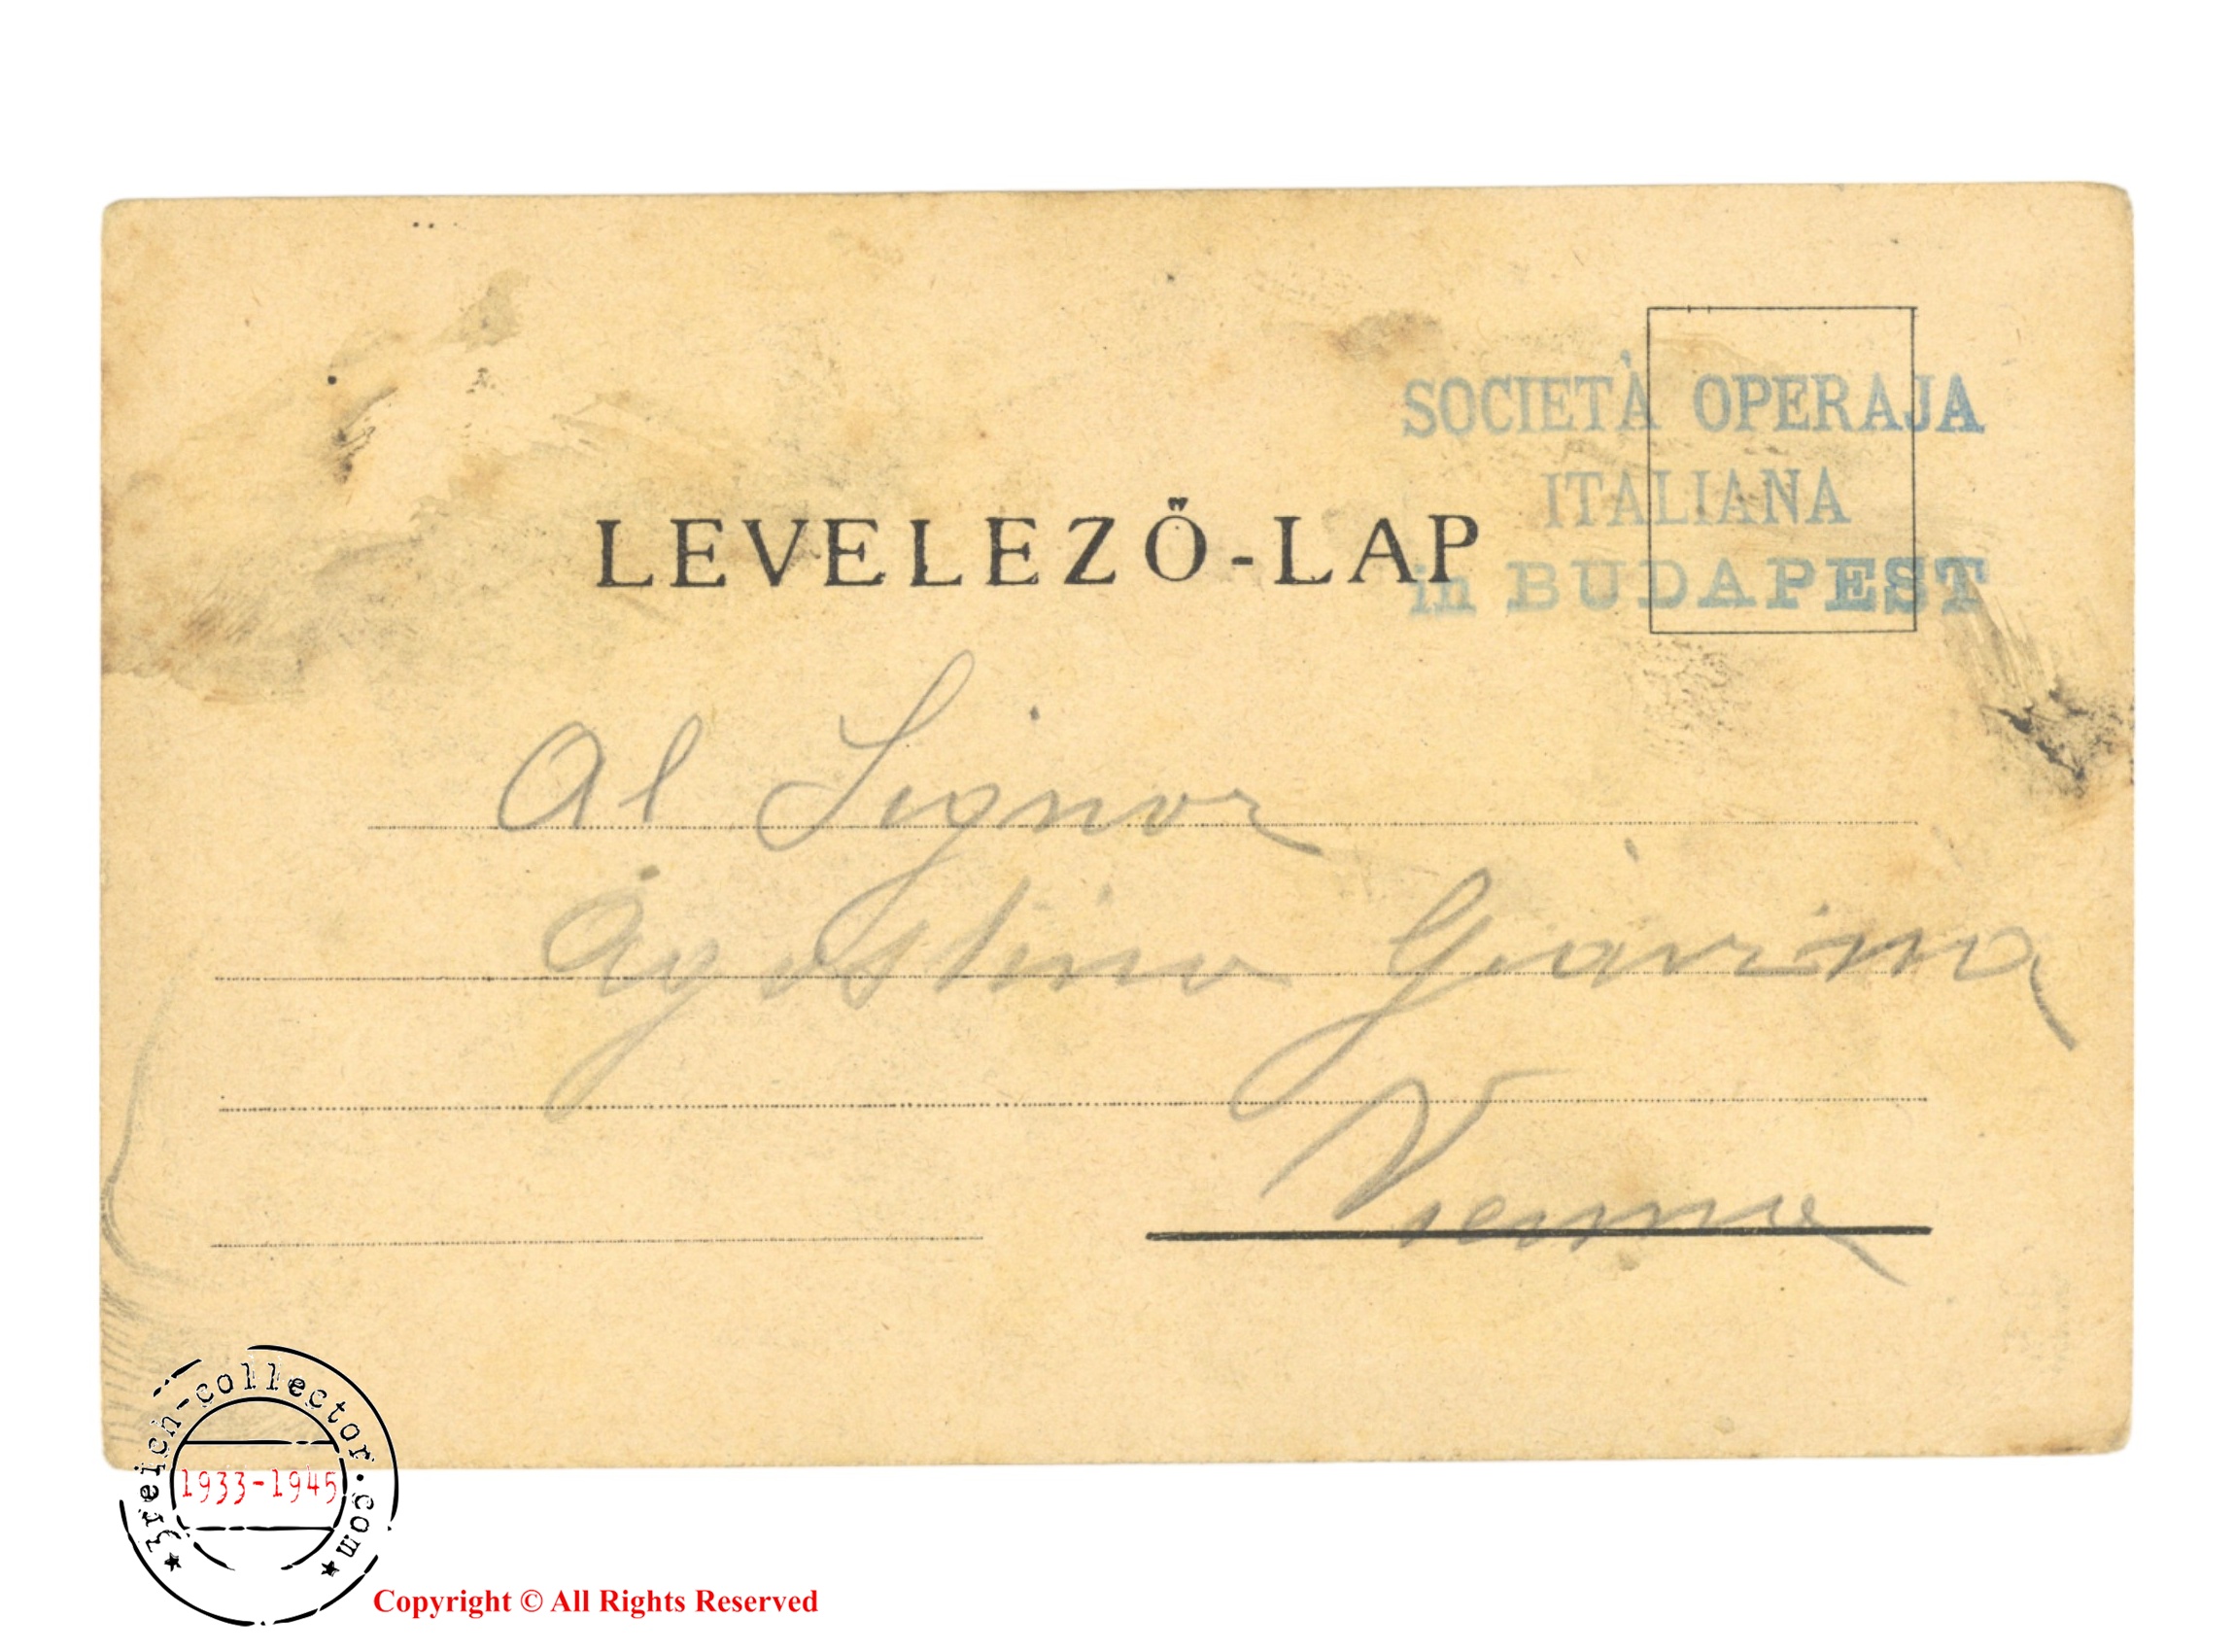 SOCIETÀ OPERAJA
ITALIANA
in BUDAPEST
LEVELEZŐ-LAP
Al Signor
Agostino Giavina
Vienna
★ 3reich-collector.com ★
1933-1945
Copyright © All Rights Reserved